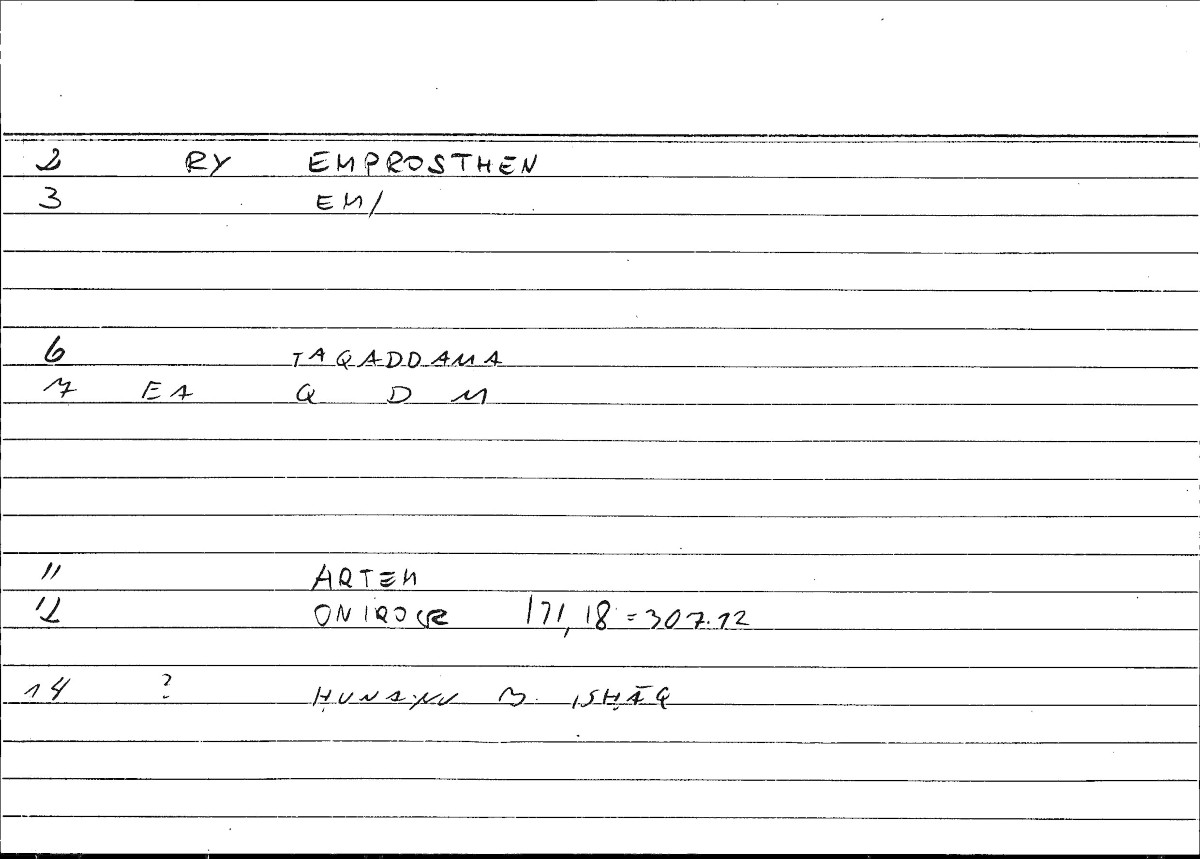 2 RY EMPROSTHEN
3 EM/
6 TAQADDAMA
7 EA Q D M
11 ARTEM
12 ONIROCR 171,18=307.12
14 ? ḤUNAYNU B. ISḤĀQ